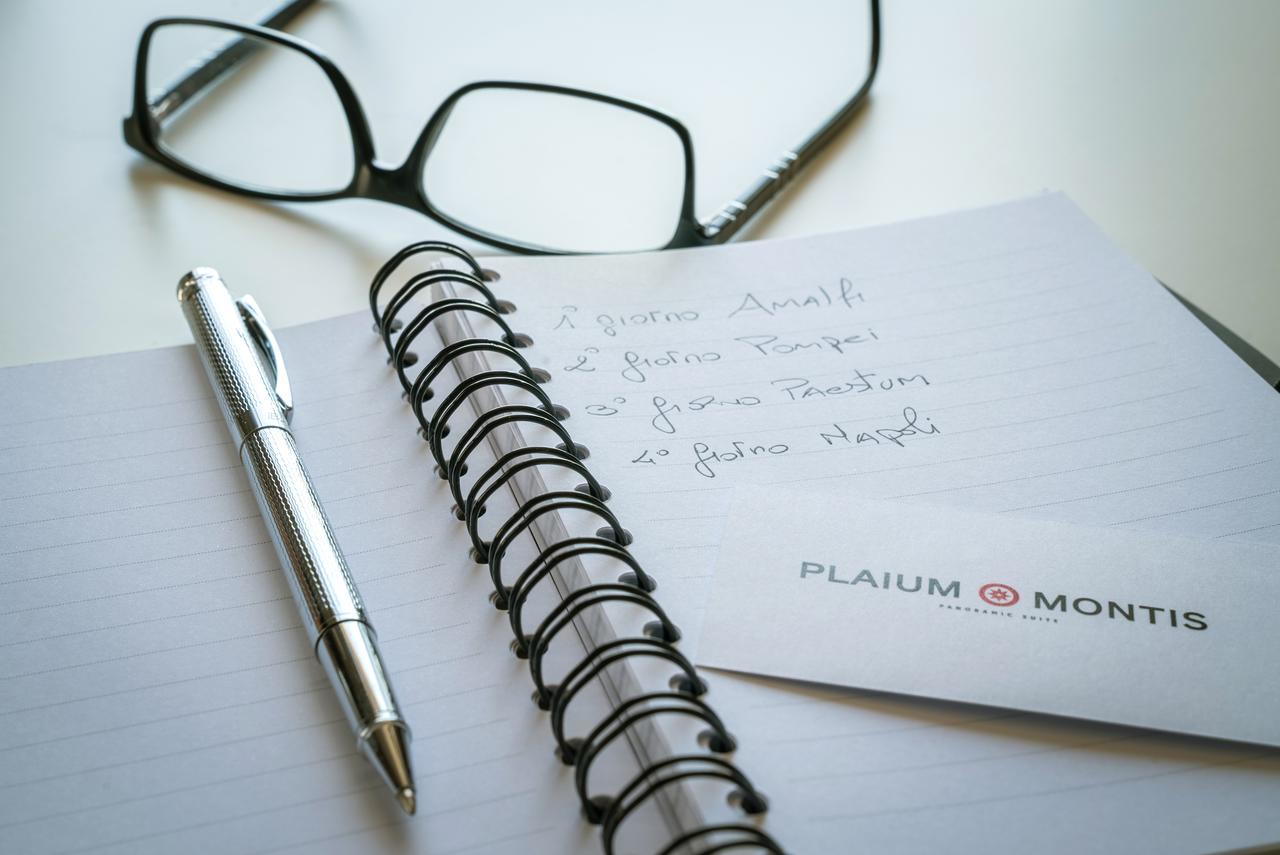 1° giorno Amalfi
2° giorno Pompei
3° giorno Paestum
4° giorno Napoli
PLAIUM MONTIS
PANORAMIC SUITE